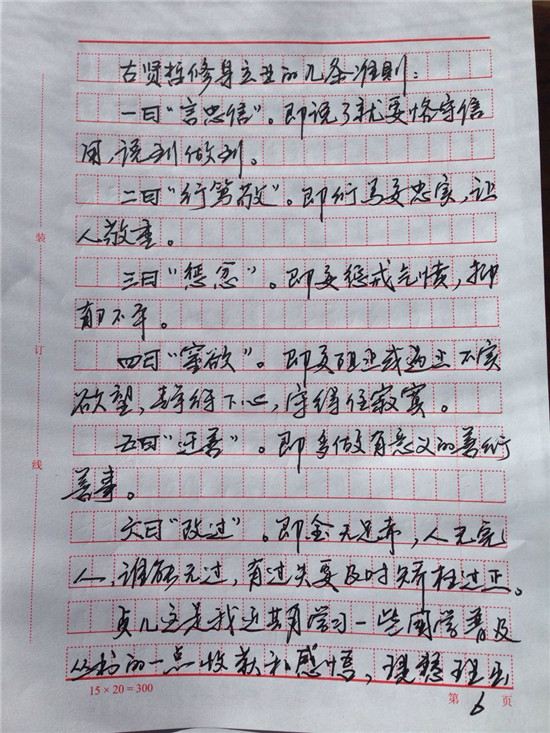 古贤哲修身立世的几条准则：
一曰“言忠信”。即说了就要恪守信
用，说到做到。
二曰“行笃敬”。即行为要忠实，让
人敬重。
三曰“惩忿”。即要惩戒气愤，抑
制不平。
四曰“窒欲”。即要阻止或遏止不实
欲望，静得下心，守得住寂寞。
五曰“迁善”。即多做有意义的善行
善事。
六曰“改过”。即金无足赤，人无完
人，谁能无过，有过失要及时矫枉过正。
贞儿这是我近其月学习一些国学普及
丛书的一点收获和感悟，现整理出
装
订
线
15×20=300
第 6 页